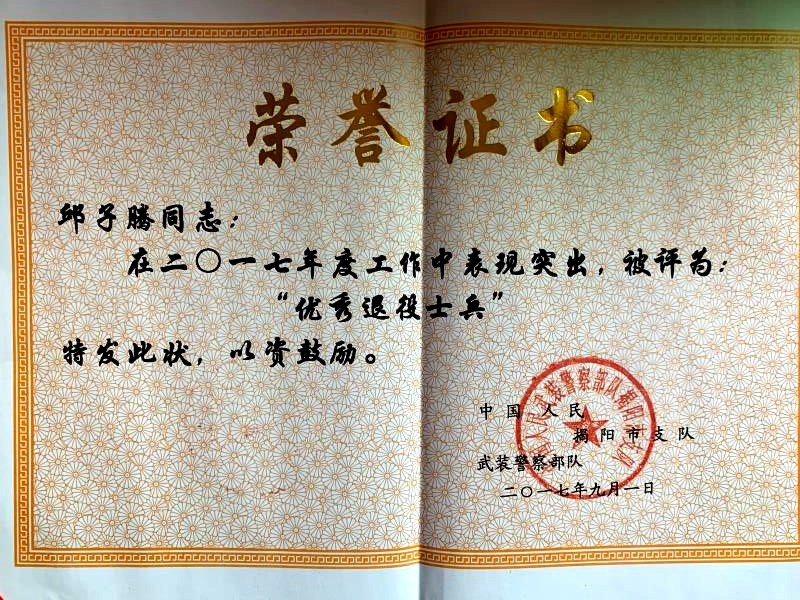 荣誉证书
邱子腾同志：
在二〇一七年度工作中表现突出，被评为：
“优秀退役士兵”
特发此状，以资鼓励。
中国人民
揭阳市支队
武装警察部队
二〇一七年九月一日